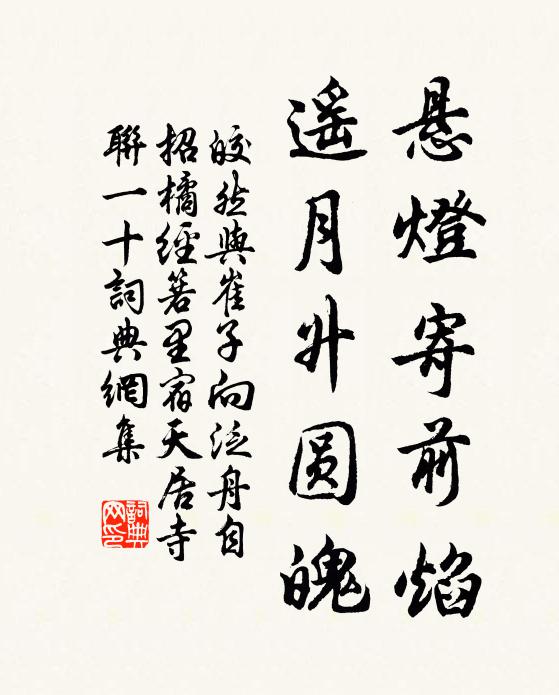 悬燈寄前焰
遥月升圆魄
皎然與崔子向泛舟自
招橘經箬里宿天居寺
聯一十詞典網集
詞典
网印